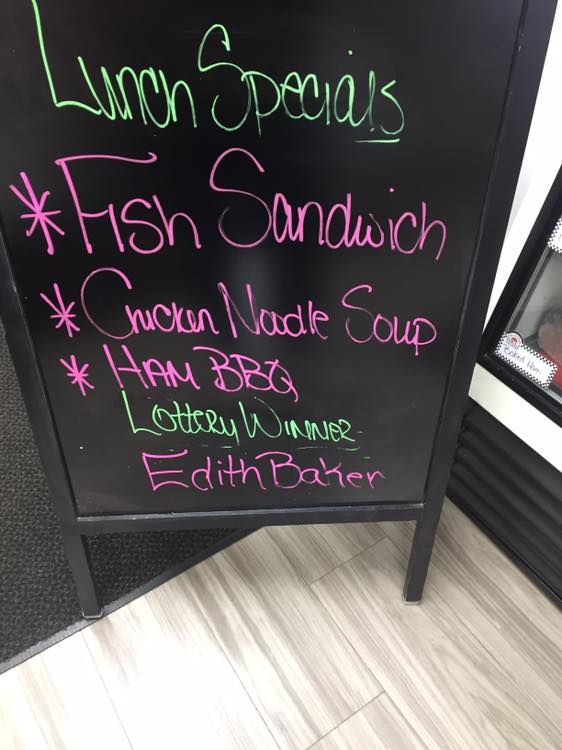 Lunch Specials
* Fish Sandwich
* Chicken Noodle Soup
* HAM BBQ
LOTTERY WINNER
Edith Baker
Baked Ham